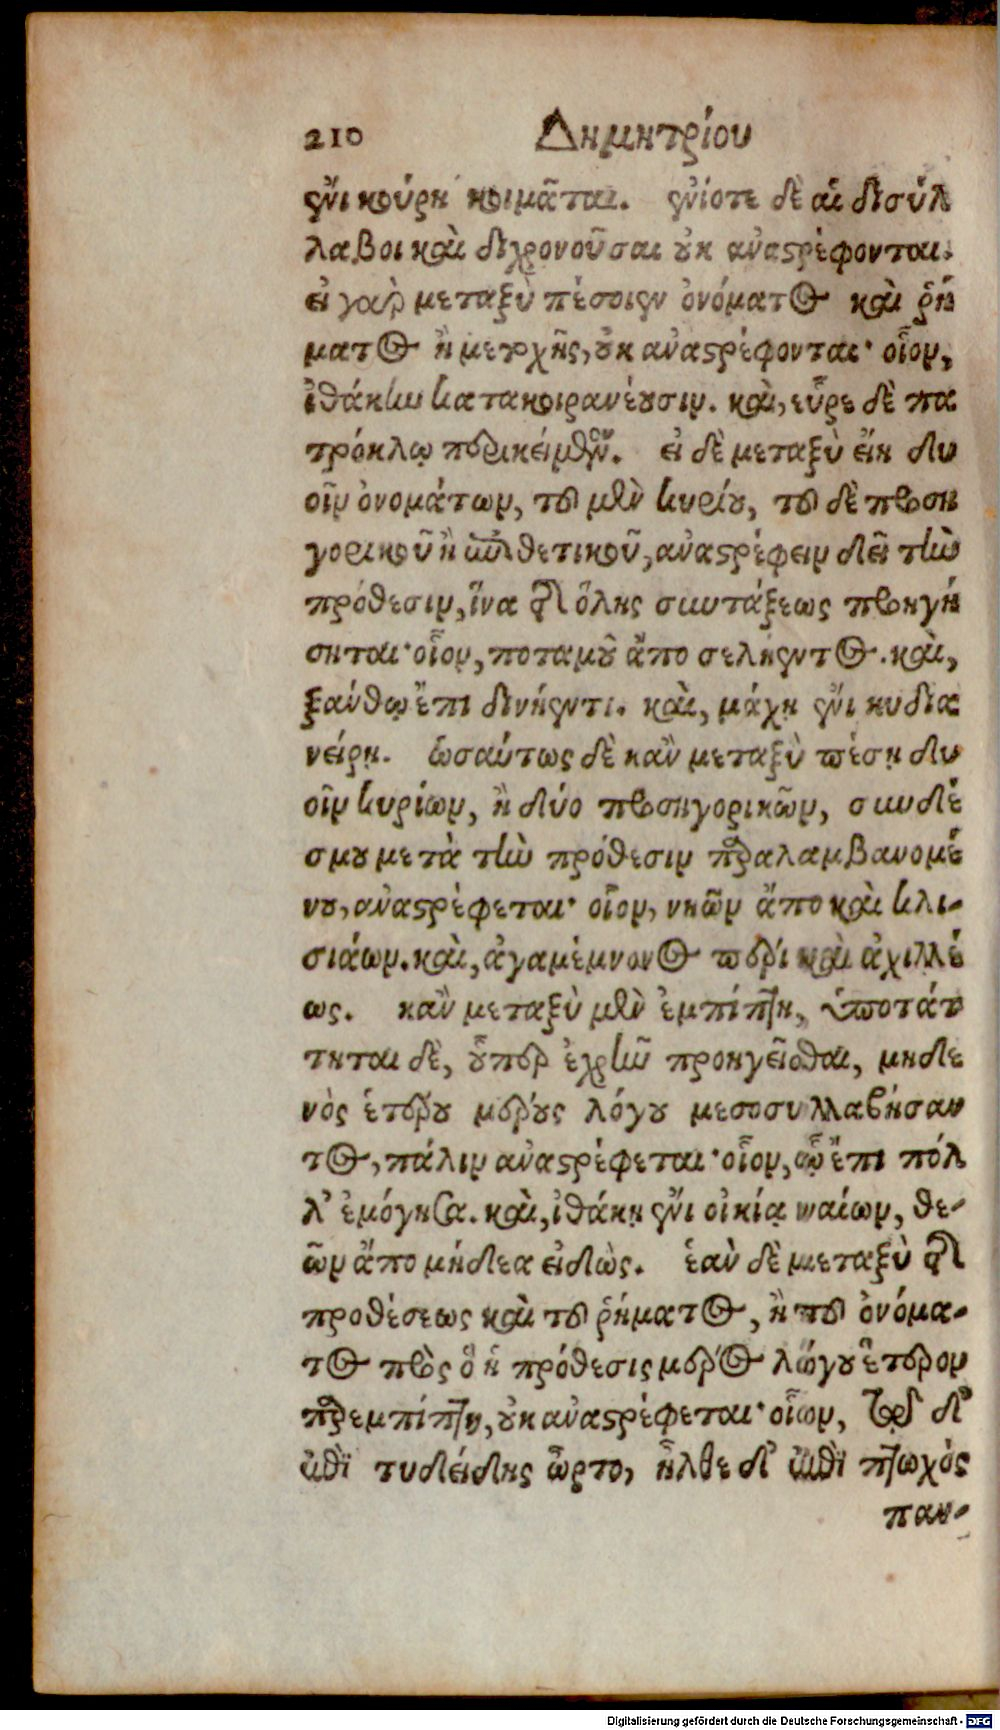 210 Δημητρίου
ἔνι κούρη κοιμᾶται. ἐνίοτε δὲ αἱ δισύλ
λαβοι καὶ διχρονοῦσαι οὐκ ἀναστρέφονται.
εἰ γὰρ μεταξὺ πέσοιεν ὀνόματος καὶ ῥή
ματος ἢ μετοχῆς, οὐκ ἀναστρέφονται· οἷον,
ἰθάκην κατακοιρανέουσιν. καὶ, εὗρε δὲ πα
τρόκλῳ περικείμενον. εἰ δὲ μεταξὺ εἴη δυ
οῖν ὀνομάτων, τοῦ μὲν κυρίου, τοῦ δὲ προση
γορικοῦ ἢ ἐπιθετικοῦ, ἀναστρέφειν δεῖ τὴν
πρόθεσιν, ἵνα τῆς ὅλης συντάξεως προηγή
σηται· οἷον, ποταμοῦ ἄπο σελήεντος. καὶ,
ξάνθῳ ἔπι δινήεντι. καὶ, μάχῃ ἔνι κυδια
νείρῃ. ὡσαύτως δὲ κἂν μεταξὺ πέσῃ δυ
οῖν κυρίων, ἢ δύο προσηγορικῶν, συνδέ
σμου μετὰ τὴν πρόθεσιν παραλαμβανομέ
νου, ἀναστρέφεται· οἷον, νηῶν ἄπο καὶ κλι-
σιάων. καὶ, ἀγαμέμνονος πέρι καὶ ἀχιλλέ
ως. κἂν μεταξὺ μὲν ἐμπίπτῃ, ὑποτάτ
τηται δὲ, οὗπερ ἐχρῆν προηγεῖσθαι, μηδε
νὸς ἑτέρου μέρους λόγου μεσοσυλλαβήσαν
τος, πάλιν ἀναστρέφεται· οἷον, ᾧ ἔπι πόλ
λ' ἐμόγησα. καὶ, ἰθάκῃ ἔνι οἰκία ναίων, θε-
ῶν ἄπο μήδεα εἰδώς. ἐὰν δὲ μεταξὺ τῆς
προθέσεως καὶ τοῦ ῥήματος, ἢ τοῦ ὀνόμα-
τος πρὸς ὃ ἡ πρόθεσις μέρος λόγου ἕτερον
παρεμπίπτῃ, οὐκ ἀναστρέφεται· οἷον, τῷ δ'
ἐπὶ τυδείδης ὦρτο, ἦλθε δ' ἐπὶ πτωχὸς
παν-
Digitalisierung gefördert durch die Deutsche Forschungsgemeinschaft - DFG